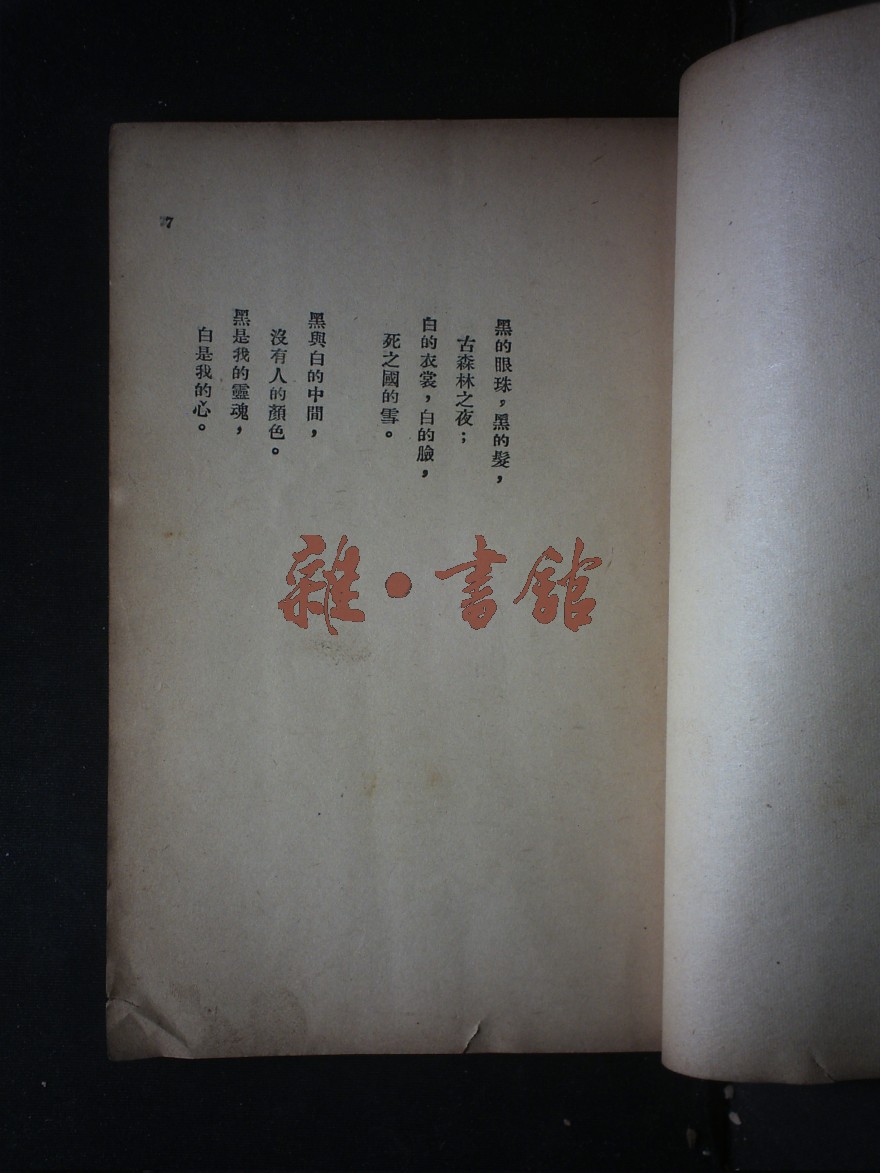 黑的眼珠，黑的髮，
古森林之夜；
白的衣裳，白的臉，
死之國的雪。
黑與白的中間，
沒有人的顏色。
黑是我的靈魂，
白是我的心。
雜·書館